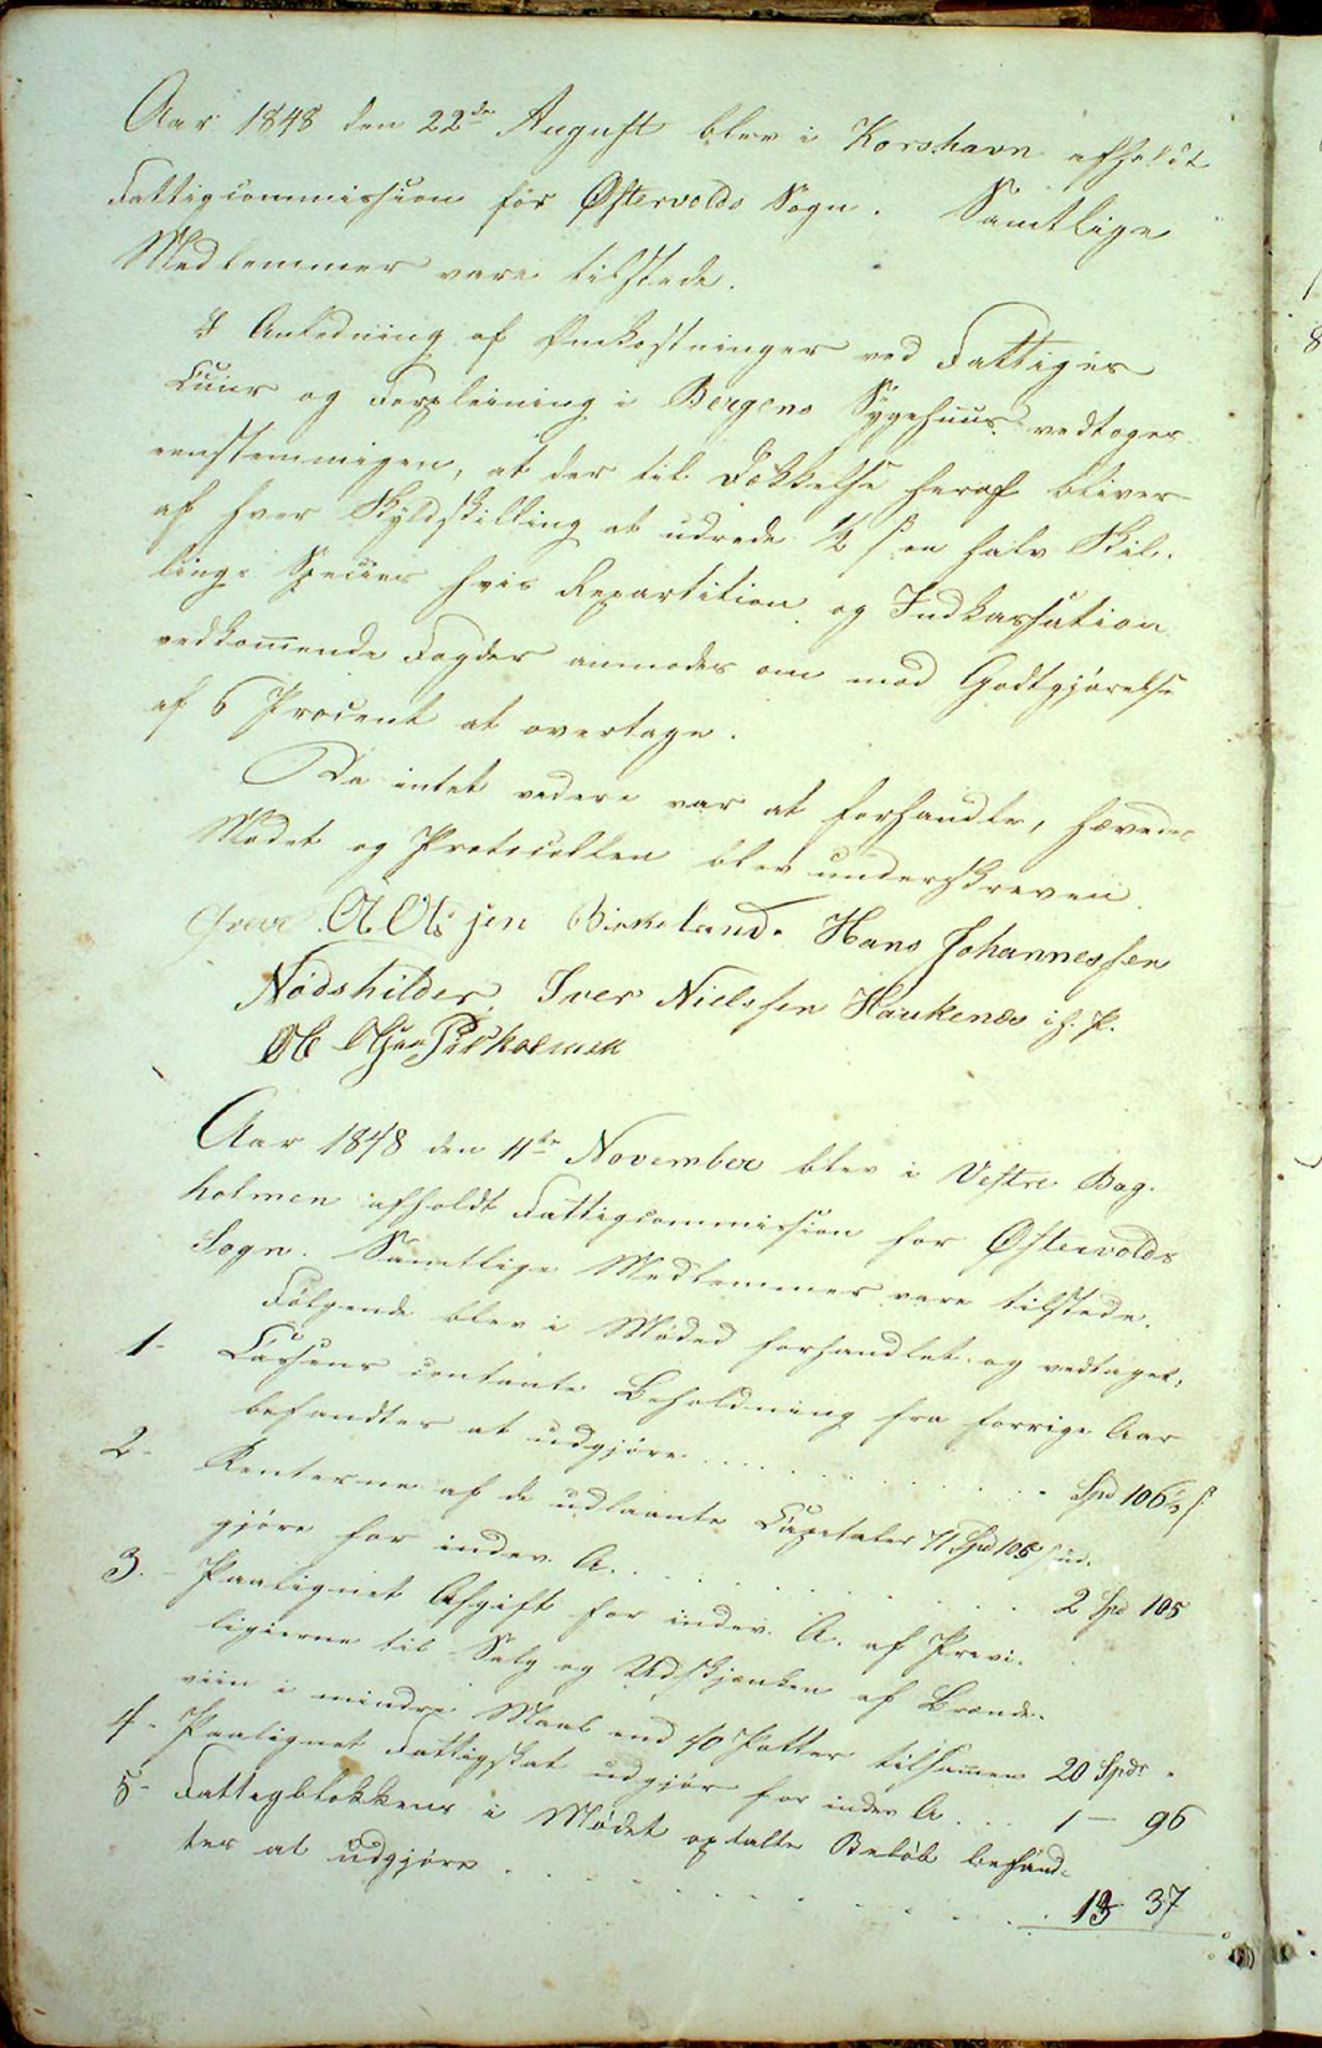 Aar 1848 den 22de August blev i Korshavn afholdt
Fattigcommission for Østervolds Sogn. Samtlige
Medlemmer vare tilstede.
I Anledning af Omkostninger ved Fattiges
Cuur og Forpleining i Bergens Sygehuus vedtoges
eenstemmigen, at der til Dækkelse heraf bliver
af hver Skyldskilling at udrede ½ ß en halv Skil-
lings Species hvis Repartition og Indkassation
vedkomende Fogder anmodes om mod Godtgjørelse
af 6 Procent at overtage.
Da intet videre var at forhandle, hævedes
Mødet og Protocollen blev underskreven.
A Olsen Birkeland. Hans Johannessen
Nødskilder. Iver Nielssen Haukenæs i. h. P.
Ole Olsen Pilholmen
Aar 1848 den 11te November blev i Vestre Bag-
holmen afholdt Fattigcommission for Østervolds
Sogn. Samtlige Medlemmer vare tilstede.
Følgende blev i Møded forhandlet og vedtaget:
1- Cassens contante Beholdning fra forrige Aar
befandtes at udgjøre . . . . . . Spd 106½ ß
2- Renterne af de udlaante Capitaler 71 Spd 105 ß ud-
gjøre for indev. A. . . . . . . 2 Spd 105
3. - Paalignet Afgift for indev. A. af Previ-
ligierne til Salg og Udskjænken af Brænde-
viin i mindre Maal end 40 Potter tilsamen 20 Spdr "
4- Paalignet Fattigskat udgjør for indev A . . . 1 — 96
5- Fattigblokkens i Mødet optalte Beløb befand-
tes at udgjøre . . . . . . 13 37